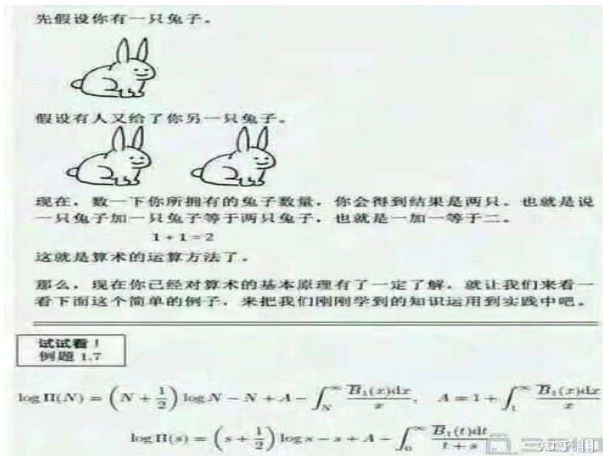 先假设你有一只兔子。
假设有人又给了你另一只兔子。
现在，数一下你所拥有的兔子数量，你会得到结果是两只。也就是说
一只兔子加一只兔子等于两只兔子，也就是一加一等于二。
1 + 1 = 2
这就是算术的运算方法了。
那么，现在你已经对算术的基本原理有了一定了解，就让我们来看一
看下面这个简单的例子，来把我们刚刚学到的知识运用到实践中吧。
试试看！
例题 1.7
log Π(N) = (N + 1/2) log N − N + A − ∫_N^∞ B̄₁(x)dx/x, A = 1 + ∫_1^∞ B̄₁(x)dx/x
log Π(s) = (s + 1/2) log s − s + A − ∫_0^∞ B̄₁(t)dt/(t + s)